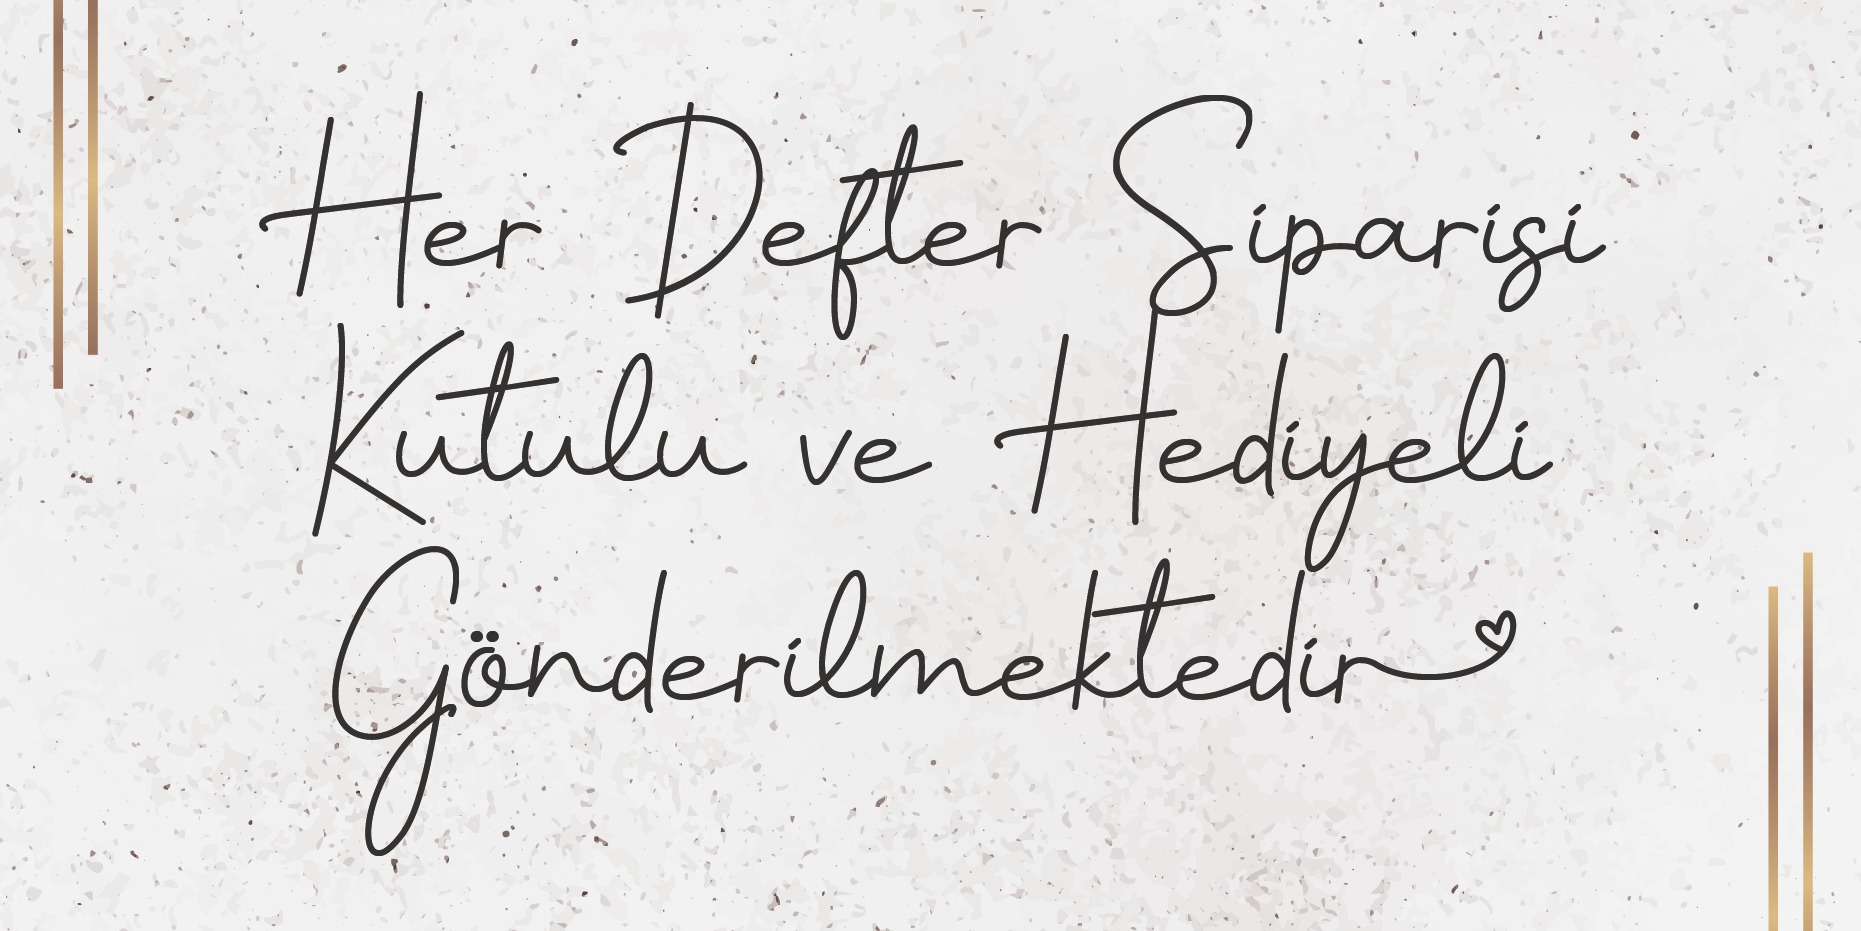 Her Defter Siparişi
Kutulu ve Hediyeli
Gönderilmektedir